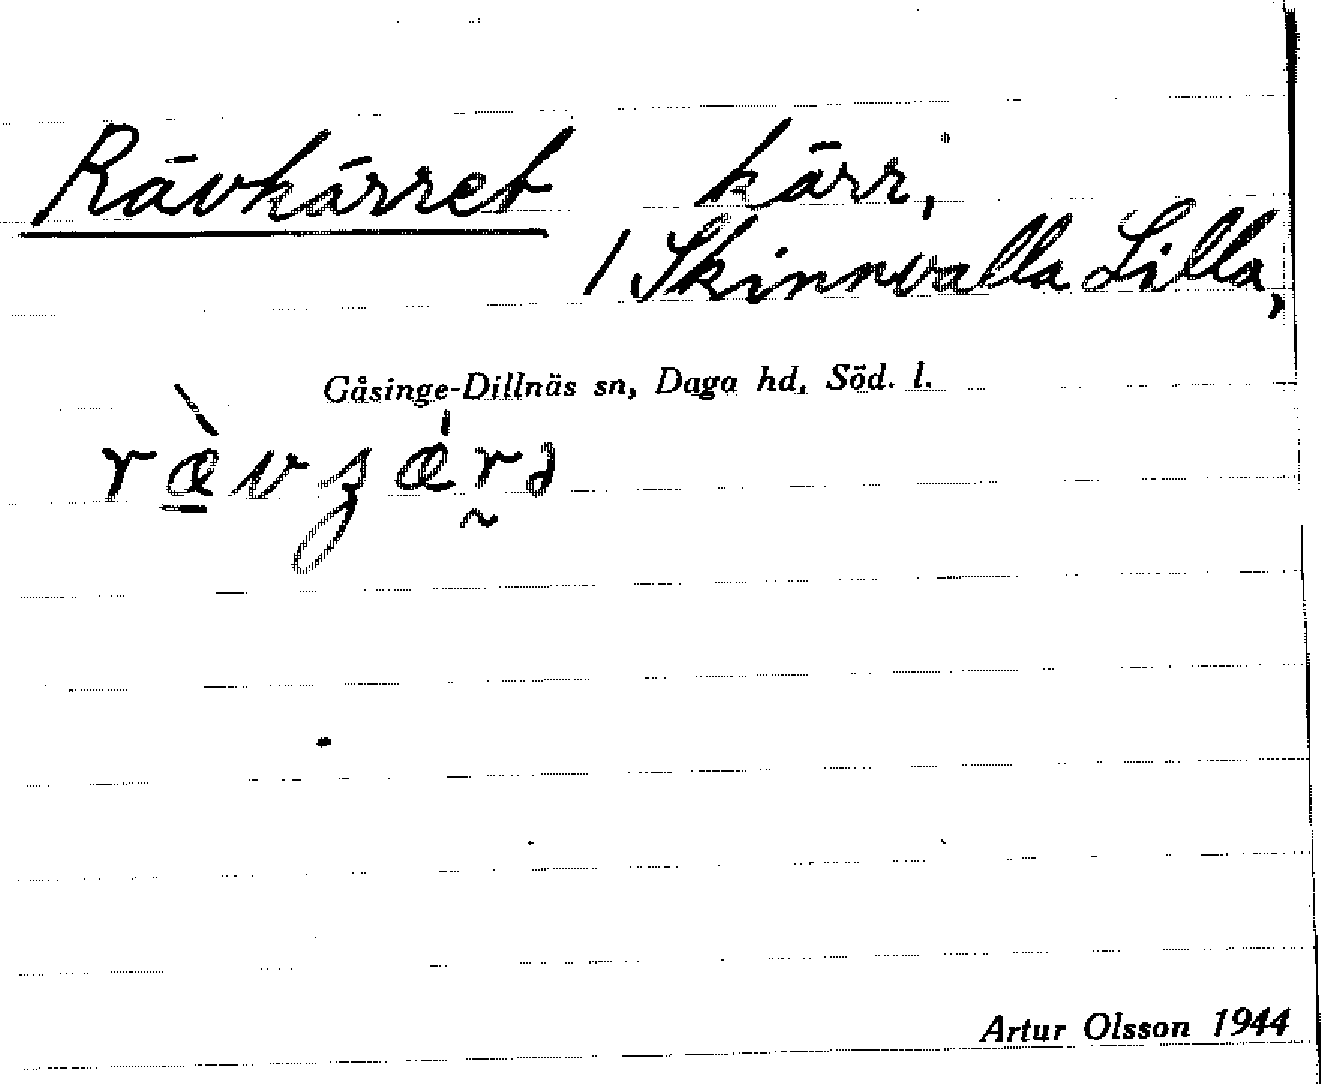 Rävkärret kärr,
/ Skinnvalla Lilla,
Gåsinge-Dillnäs sn, Daga hd, Söd. l.
Artur Olsson 1944